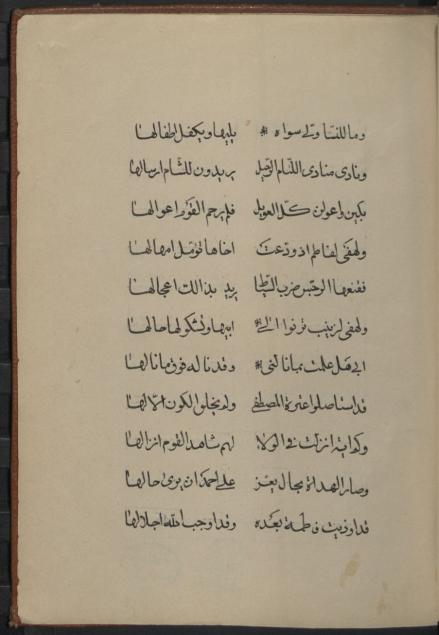 وما للنسا وتى سواه * يليها ويكفل اطفالها
ونادى منادى اللئام الرحيل يريدون للشام ارسالها
بكين واعولن كل العويل فلم يرحم القوم اعوالها
ولهفى لفاطم اذ ودعت اخاها تؤمل امهالها
فقنعها الرجس ضرب السياط يريد بذالك اعجالها
ولهفى لزينب ترنوا الى * ابيها وتشكو لها حالها
ابى هل علمت بما نالنى * وقد ناله فوق ما نالها
قد استاصلوا عترة المصطفى ولم يخلق الكون الا لها
وكم اية انزلت فى الولا لهم شاهد القوم انزالها
وصار الهداة بحال يعز على احمد ان يرى حالها
قد اوذيت فاطمة بعده وقد اوجب الله اجلالها